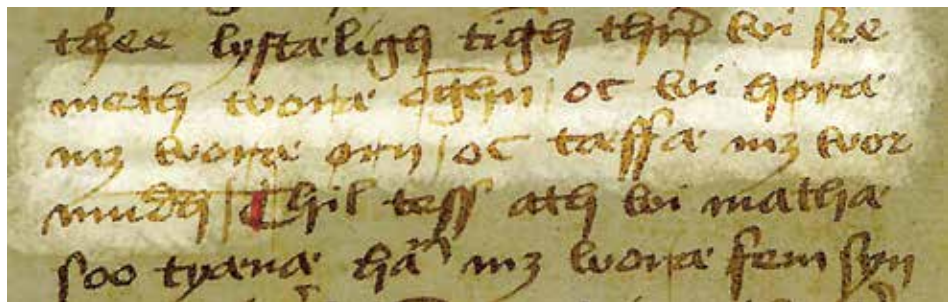 thee lystæligh tigh thr̃ wi see
mæth woræ øghn oc wi høræ
mꝫ woræ ørn / oc tæssæ mꝫ wor
mudh / Thil tess ath wi mathæ
soo tyænæ hãm mꝫ woræ fem syn